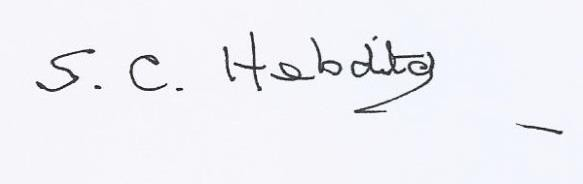 S. C. Hebditch